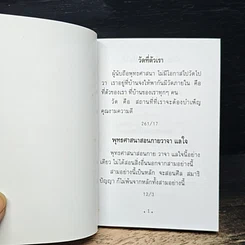 วัดที่ตัวเรา
ผู้นับถือพุทธศาสนา ไม่มีโอกาสไปวัดไป
วา เราอยู่ที่บ้านจงให้พากันมีวัดภายใน คือ
ที่ตัวของเรา ที่บ้านของเราทุกๆ คน
วัด คือ สถานที่ที่เราจะต้องบำเพ็ญ
คุณงามความดี
261/17
พุทธศาสนาสอนกายวาจา แลใจ
พุทธศาสนาสอนกาย วาจา แลใจนี้อย่าง
เดียว ไม่ได้สอนสิ่งอื่นนอกจากสามอย่างนี้
สามอย่างนี้เป็นหลัก จะสอนศีล สมาธิ
ปัญญา ก็ไม่พ้นจากหลักทั้งสามอย่างนี้
10/2